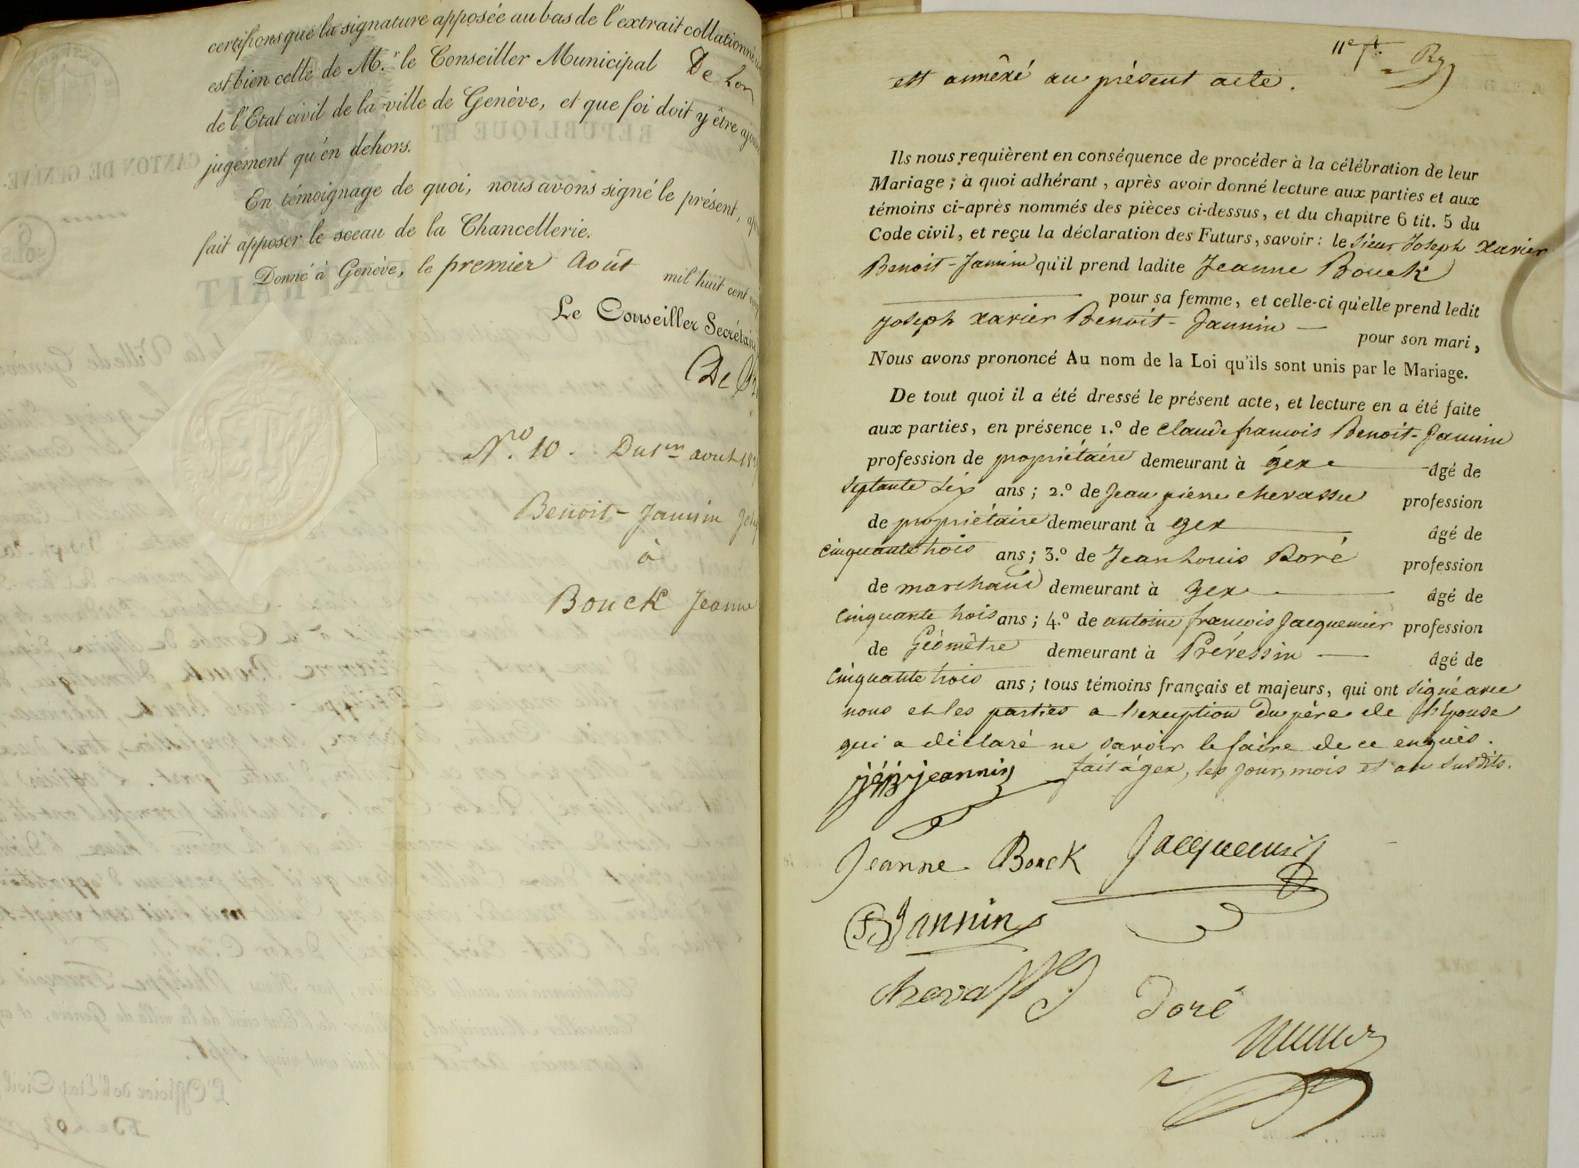 certifions que la signature apposée au bas de l'extrait collationné
est bien celle de M.r le Conseiller Municipal De Lor
de l'Etat civil de la ville de Genève, et que foi doit y être ajou
jugement qu'en dehors.
En témoignage de quoi, nous avons signé le présent,
fait apposer le sceau de la Chancellerie.
Donné à Genève, le premier Août mil huit cent
Le Conseiller Secrétaire
De
N.o 10. Du 1er aout 18
Benoit-Jannin
à
Bouck Jeanne
11e
est annéxé au présent acte.
Ils nous requièrent en conséquence de procéder à la célébration de leur
Mariage ; à quoi adhérant, après avoir donné lecture aux parties et aux
témoins ci-après nommés des pièces ci-dessus, et du chapitre 6 tit. 5 du
Code civil, et reçu la déclaration des Futurs, savoir : le Sieur Joseph Xavier
Benoit-Jannin qu'il prend ladite Jeanne Bouck
pour sa femme, et celle-ci qu'elle prend ledit
Joseph Xavier Benoit-Jannin pour son mari,
Nous avons prononcé Au nom de la Loi qu'ils sont unis par le Mariage.
De tout quoi il a été dressé le présent acte, et lecture en a été faite
aux parties, en présence 1.º de Claude françois Benoit-Jannin
profession de propriétaire demeurant à Gex âgé de
Septante Six ans ; 2.º de Jean pierre chevassu profession
de propriétaire demeurant à Gex âgé de
Cinquante trois ans ; 3.º de Jean Louis Doré profession
de marchand demeurant à Gex âgé de
Cinquante trois ans ; 4.º de antoine françois Jacquemier profession
de Géomêtre demeurant à Prévessin âgé de
Cinquante trois ans ; tous témoins français et majeurs, qui ont signé avec
nous et les parties a l'exception du père de l'épouse
qui a déclaré ne savoir le faire de ce enquis.
fait à gex, les jour, mois et an susdits.
jeannin
Jeanne Bouck Jacquemier
Jannin
chevassu
Doré